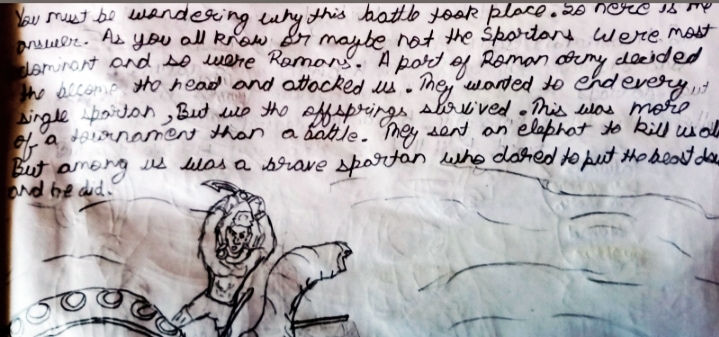 You must be wandering why this battle took place. So here is the
answer. As you all know or maybe not the Spartans were most
dominant and so were Romans. A part of Roman army decided
the become the head and attacked us. They wanted to end every
single spartan, But we the offsprings survived. This was more
of a tournament than a battle. They sent an elephat to kill us all
But among us was a brave spartan who dared to put the beast
and he did.